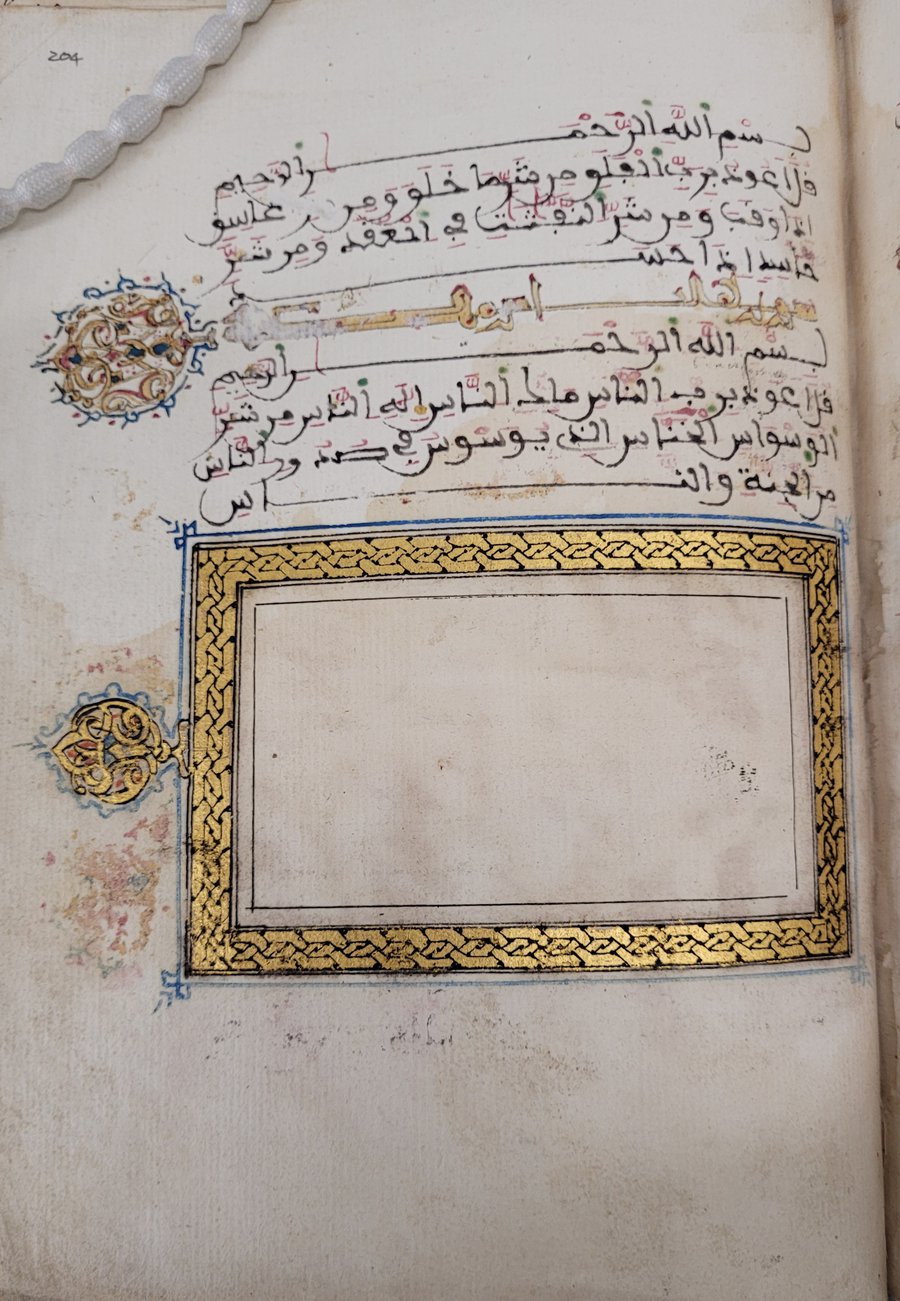 204
بسم الله الرحمن الرحيم
قل اعوذ برب الفلق من شر ما خلق ومن شر غاسق
اذا وقب ومن شر النفثت في العقد ومن شر
حاسد اذا حسد
سورة الناس
بسم الله الرحمن الرحيم
قل اعوذ برب الناس ملك الناس اله الناس من شر
الوسواس الخناس الذي يوسوس في صدور الناس
من الجنة والناس